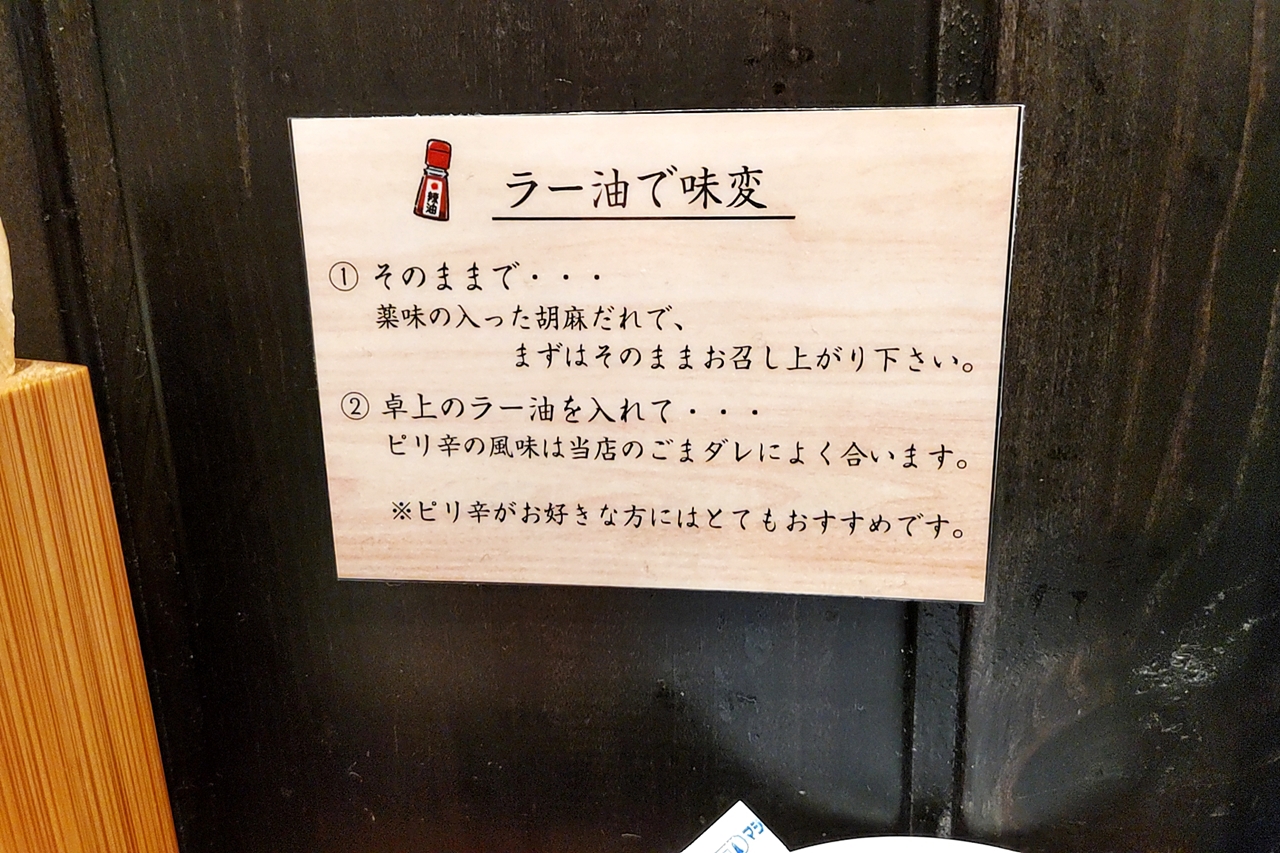 辣油
ラー油で味変
① そのままで・・・
薬味の入った胡麻だれで、
まずはそのままお召し上がり下さい。
② 卓上のラー油を入れて・・・
ピリ辛の風味は当店のごまダレによく合います。
※ピリ辛がお好きな方にはとてもおすすめです。
マシ